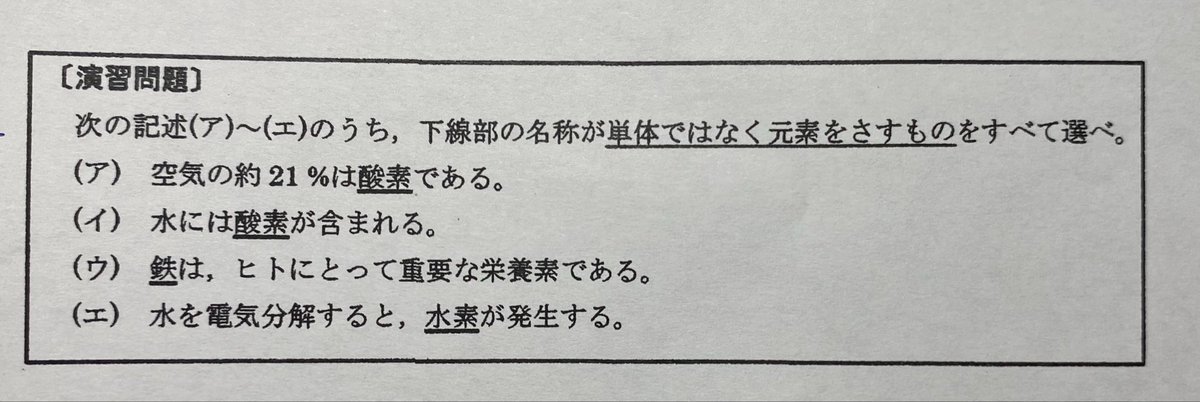 〔演習問題〕
次の記述(ア)～(エ)のうち，下線部の名称が単体ではなく元素をさすものをすべて選べ。
(ア) 空気の約 21 %は酸素である。
(イ) 水には酸素が含まれる。
(ウ) 鉄は，ヒトにとって重要な栄養素である。
(エ) 水を電気分解すると，水素が発生する。